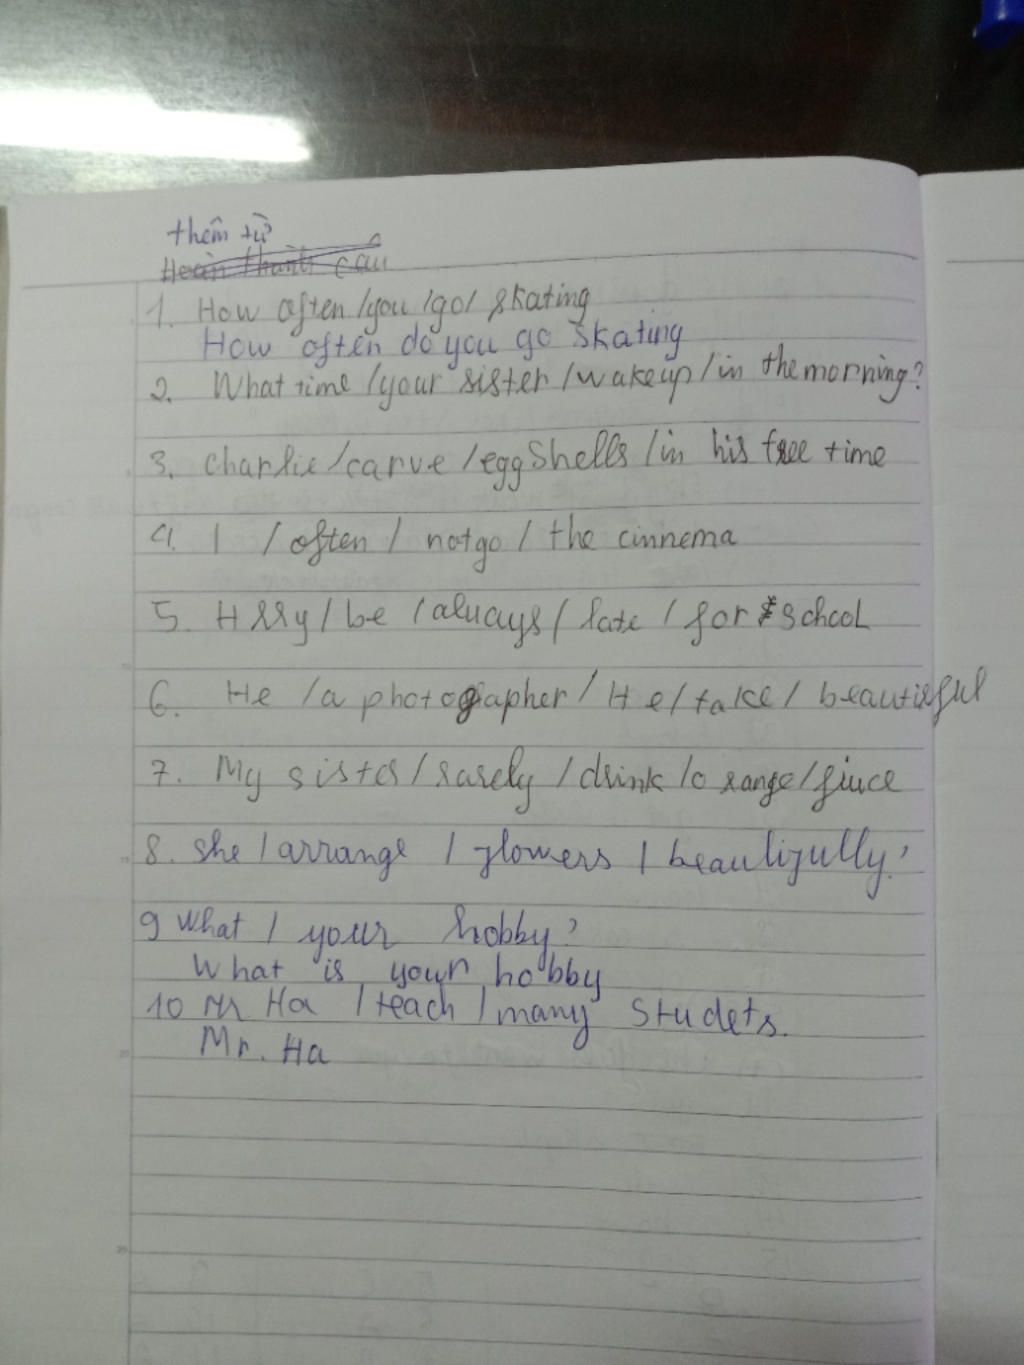 thêm từ
Hoàn thành câu
1. How often /you /go/ skating
How often do you go skating
2. What time /your sister /wake up / in the morning?
3. Charlie /carve /eggshells /in his free time
4. I / often / not go / the cinnema
5. / be / always / late / for school
6. He /a photogapher / He / take /
7. My sister / rarely / drink /o range /
8. she / arrange / flowers / beautifully?
9 What / your hobby?
What is your hobby
10 Mr Ha / teach / many Studets.
Mr. Ha